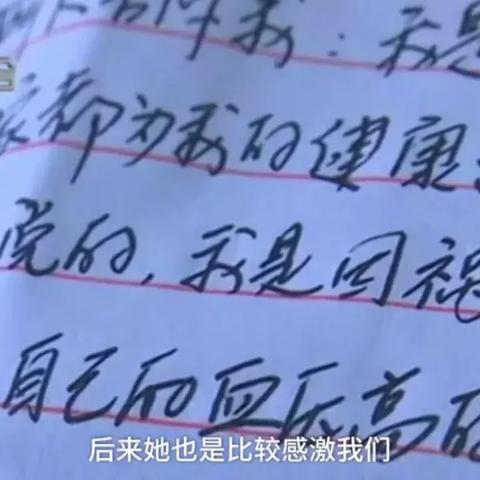 我：我是
家都为我的健康
的，我是因祸
自己的血压高的
后来她也是比较感激我们